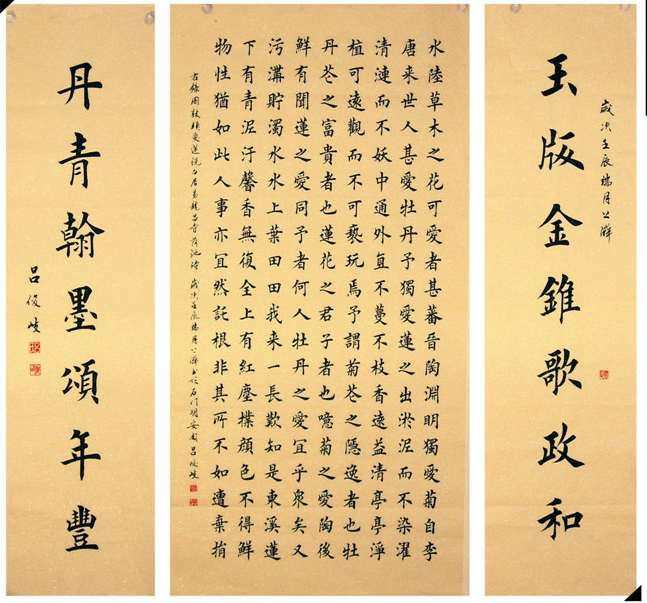 歲次壬辰端月上澣
玉版金錐歌政和
水陸草木之花可愛者甚蕃晉陶淵明獨愛菊自李
唐來世人甚愛牡丹予獨愛蓮之出淤泥而不染濯
清漣而不妖中通外直不蔓不枝香遠益清亭亭淨
植可遠觀而不可褻玩焉予謂菊花之隱逸者也牡
丹花之富貴者也蓮花之君子者也噫菊之愛陶後
鮮有聞蓮之愛同予者何人牡丹之愛宜乎眾矣又
污溝貯濁水水上葉田田我來一長歎知是東溪蓮
下有青泥汙馨香無復全上有紅塵撲顏色不得鮮
物性猶如此人事亦宜然託根非其所不如遭棄捐
右錄周敦頤愛蓮說白居易 歲次壬辰端月上澣 呂俊岐
丹青翰墨頌年豐
呂俊岐